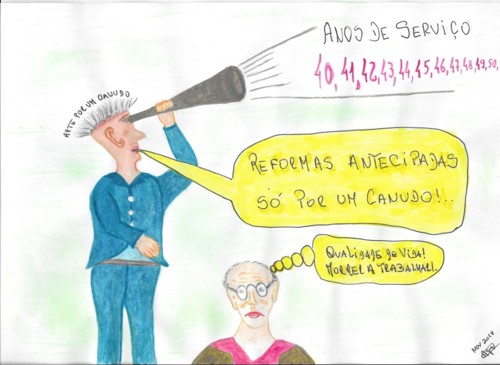 ANOS DE SERVIÇO
40,41,42,43,44,45,46,47,48,49,50,
ARTE POR UM CANUDO
REFORMAS ANTECIPADAS
SÓ POR UM CANUDO!..
QUALIDADE DE VIDA!
MORRER A TRABALHAR!.
NOV 2019